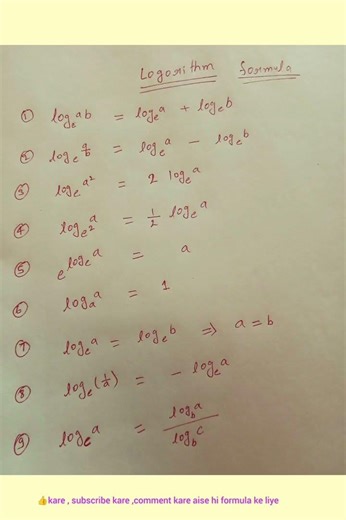 Logorithm formula
① logₑab = logₑa + logₑb
② logₑa/b = logₑa - logₑb
③ logₑa² = 2 logₑa
④ log_e²a = 1/2 logₑa
⑤ e^logₑa = a
⑥ logₐa = 1
⑦ logₑa = logₑb ⇒ a = b
⑧ logₑ(1/a) = - logₑa
⑨ log_c a = log_b a / log_b c
👍kare , subscribe kare ,comment kare aise hi formula ke liye